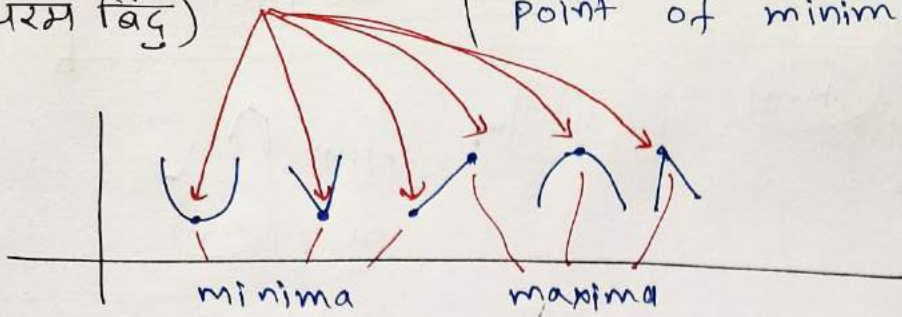 चरम बिंदु)
point of minim
minima
maxima